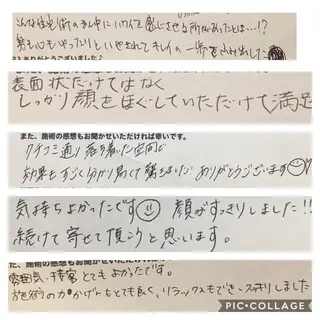 こんな住宅街のまん中にハワイを感じさせる所があったとは…!?
身も心もゆったりといやされてキレイの一歩をふみ出した
ありがとうございました♪
表面状だけではなく
しっかり顔をほぐしていただけて満足
また、施術の感想もお聞かせいただければ幸いです。
クチコミ通り落ち着いた空間で
効果もすごく分かり易くて驚きました ありがとうございます
気持ちよかったです 顔がすっきりしました!!
続けて寄せて頂こうと思います。
また、施術の感想もお聞かせいただければ幸いです。
雰囲気・接客とてもよかったです。
施術の力かげんもとても良く、リラックスもでき、スッキリしました
PIC•COLLAGE